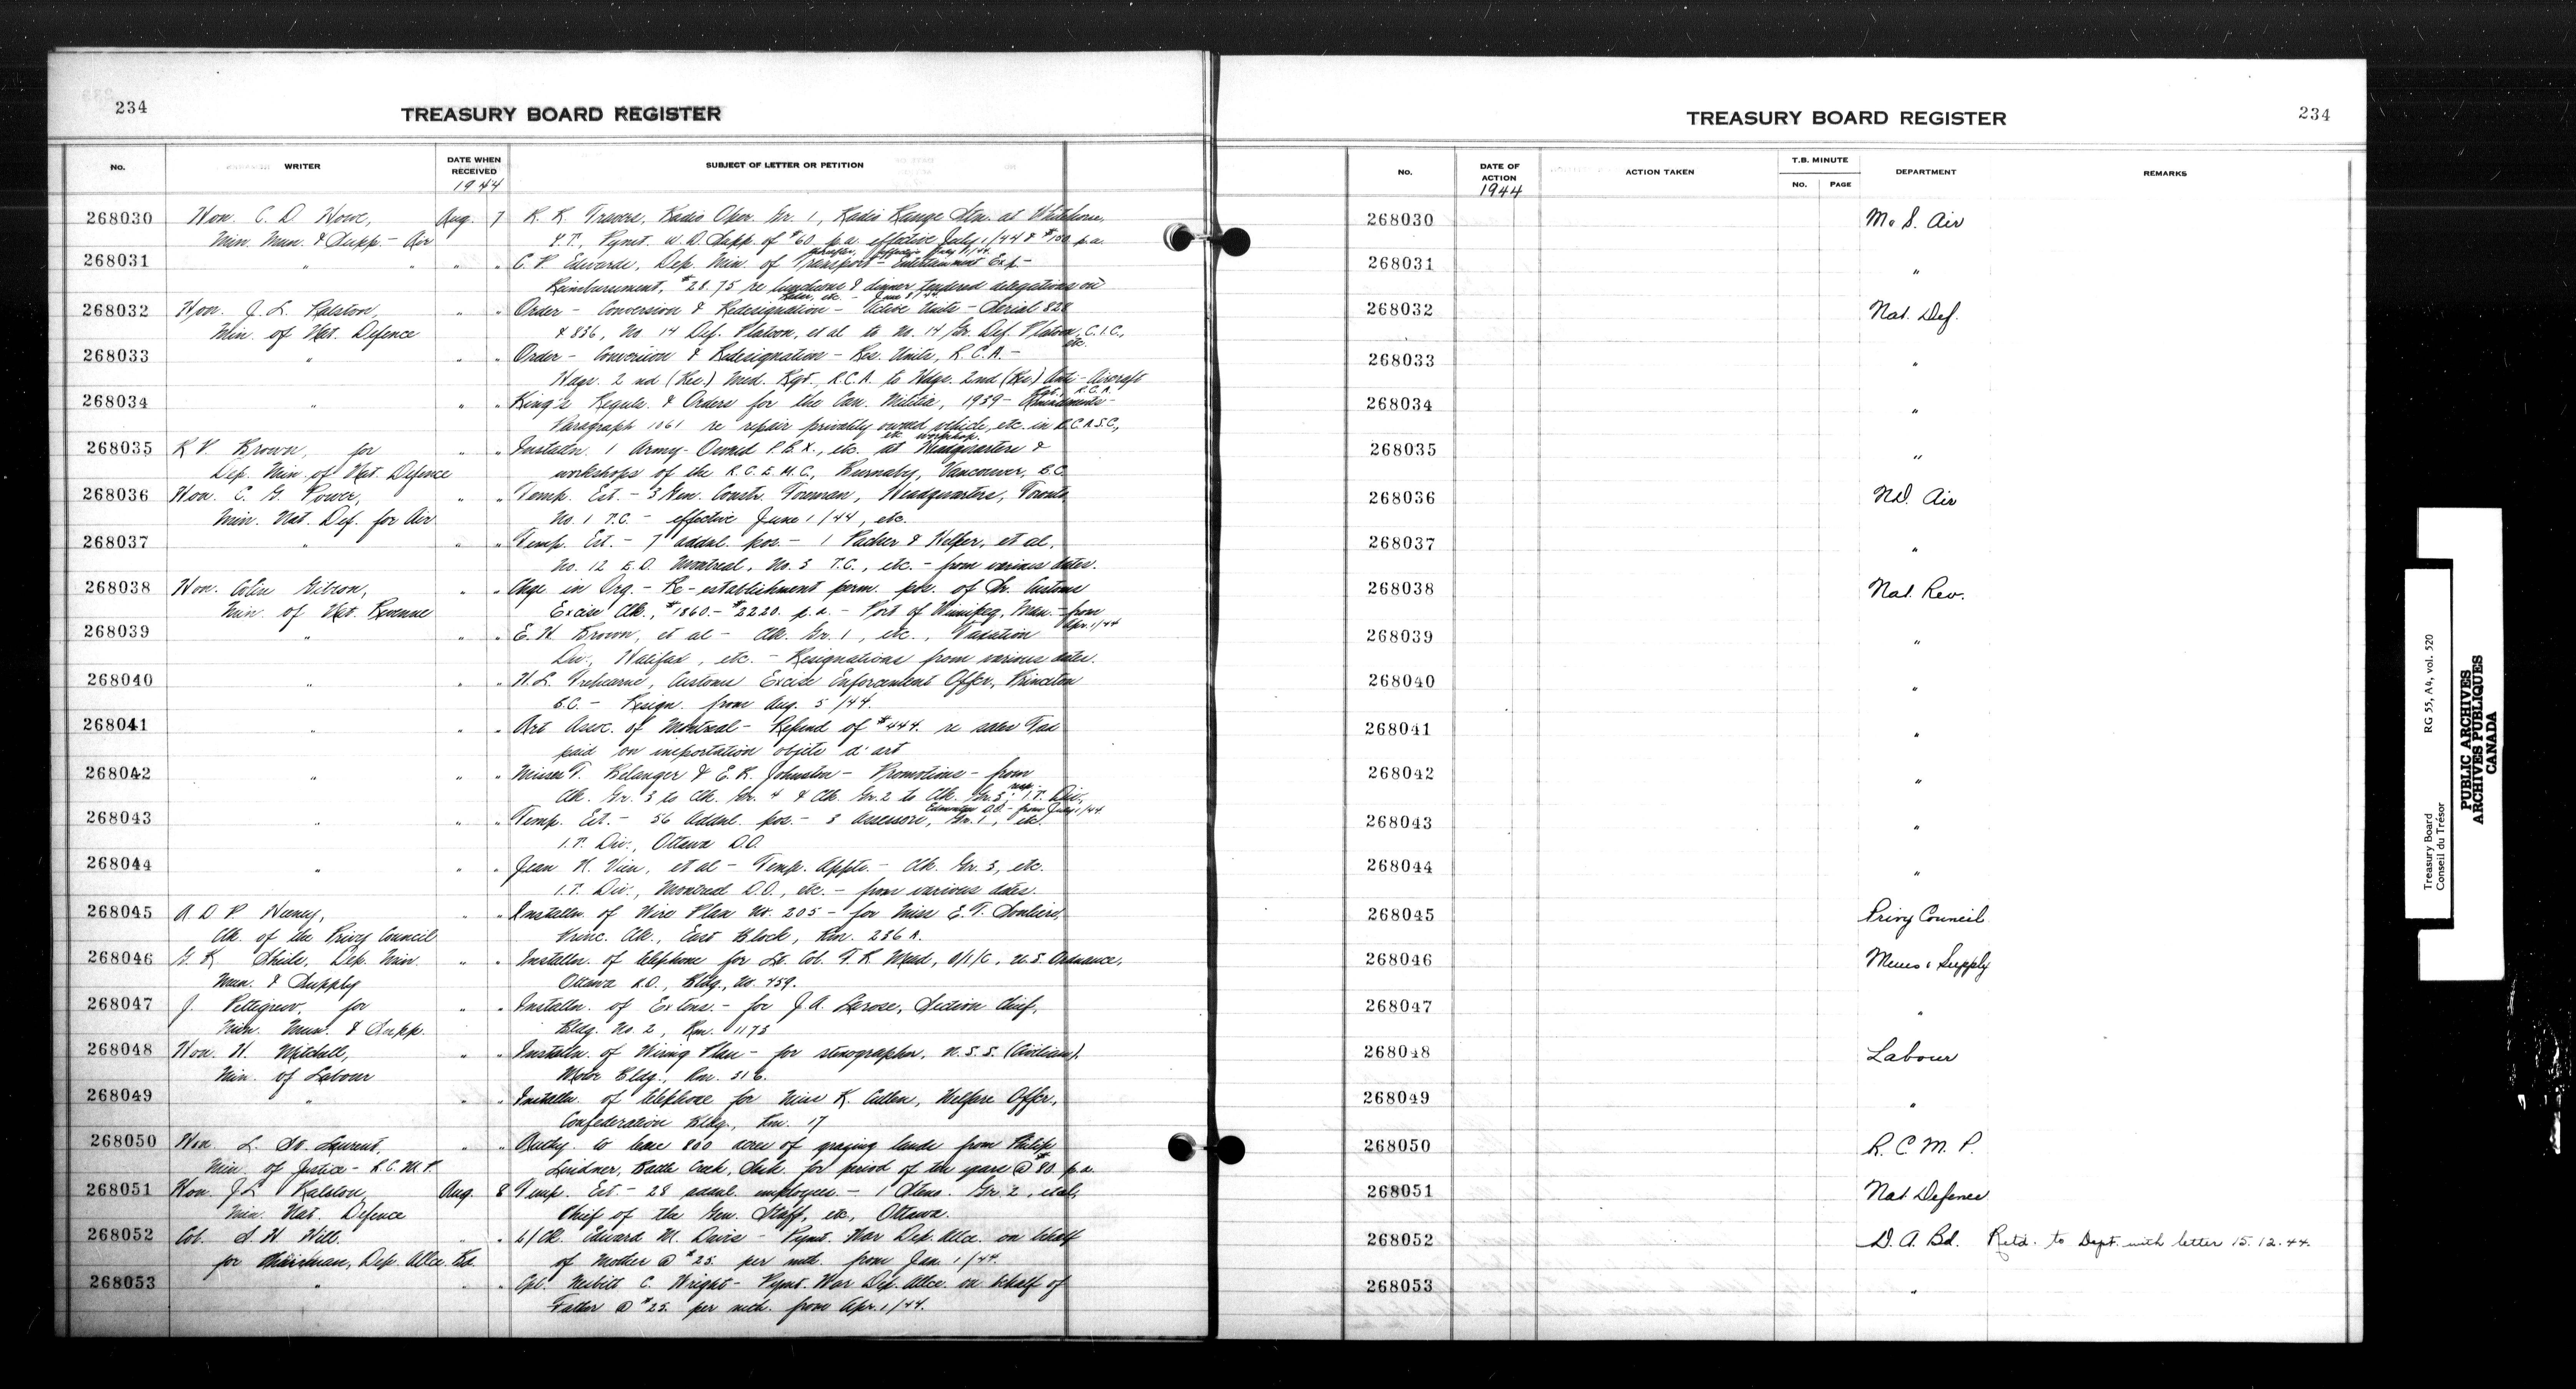 234
TREASURY BOARD REGISTER
No.
WRITER
DATE WHEN RECEIVED
1944
SUBJECT OF LETTER OR PETITION
268030 Hon. C. D. Howe, Aug. 7 R. K. Oper. Gr. 1, Radio Range Stn. at Whitehorse,
Min. Mun. & Supp. - Air Y.T., Paymt. W. D. Supp. of $60. p.a. effective July 1/44 & $180. p.a.
thereafter, effective
268031 " " " " C. P. Edwards, Dep. Min. of Transport - Entertainment Exp. -
Reimbursement, $28.75 re luncheons & dinner tendered delegations on
Hon. J. L. Ralston, " " Order - Conversion & Redesignation - Active Units - Serial 828
268032 Min. of Nat. Defence & 836, No. 14 Def. Platoon, et al to No. 14 Gr. Def. Platoon, C.I.C.,
etc.
268033 " " " Order - Conversion & Redesignation - Res. Units, R.C.A. -
Hdqr. 2nd (Res.) Med. Rgt., R.C.A. to Hdqr. 2nd (Res.) Anti-Aircraft
Rgt. R.C.A.
268034 " " " King's Reguls. & Orders for the Can. Militia, 1939 - Amendments -
Paragraph 1061 re repair privately owned vehicle, etc. in R.C.A.S.C.,
etc. workshop.
268035 R. V. Brown, for " " Installn. 1 Army-Owned P.B.X., etc. at Headquarters &
Dep. Min. of Nat. Defence workshops of the R.C.E.M.E., Burnaby, Vancouver, B.C.
268036 Hon. C. G. Power, " " Temp. Est. - 3 Gen. Constr. Foreman, Headquarters, Toronto
Min. Nat. Def. for Air No. 1 T.C. - effective June 1/44, etc.
268037 " " " Temp. Est. - 7 addnl. pos. - 1 Packer & Helper, et al,
No. 12 E.D. Montreal, No. 3 T.C., etc. - from various dates.
268038 Hon. Colin Gibson, " " Chge in Org. - Re-establishment perm. pos. of Sr. Customs
Min. of Nat. Revenue Excise Clk., $1860. - $2220. p.a. - Port of Winnipeg, Man. - from
Apr. 1/44
268039 " " " E. H. Brown, et al - Clk. Gr. 1, etc., Taxation
Div., Halifax, etc. - Resignations from various dates.
268040 " " " H. L. Trehearne, Customs Excise Enforcement Offcr., Princeton
B.C. - Resign. from Aug. 5/44.
268041 " " " Art Assoc. of Montreal - Refund of $444. re sales Tax
paid on importation objets d'art
268042 " " " Misses T. Belanger & E. K. Johnston - Promotions - from
Clk. Gr. 3 to Clk. Gr. 4 & Clk. Gr. 2 to Clk. Gr. 3, resp. I.T. Div.,
Edmonton D.O. - from July 1/44
268043 " " " Temp. Est. - 56 Addnl. pos. - 3 Assessors, Gr. 1, etc.
I.T. Div., Ottawa D.O.
268044 " " " Jean H. Vien, et al - Temp. Appts. - Clk. Gr. 3, etc.
I.T. Div., Montreal D.O., etc. - from various dates.
268045 A. D. P. Heeney, " " Installn. of Wire Plan No. 205 - for Miss E. T.
Clk. of the Privy Council Princ. Clk., East Block, Rm. 236 A.
268046 G. K. Sheils, Dep. Min. " " Installn. of telephone for Lt. Col. T. K. Mead, O/I/C, U.S. Ordnance,
Mun. & Supply Ottawa R.O., Bldg., No. 459.
268047 J. Pettigrew, for " " Installn. of Extens. - for J. A. Larose, Section Chief,
Min. Mun. & Supp. Bldg. No. 2, Rm. 1173
268048 Hon. H. Mitchell, " " Installn. of Wiring Plan - for stenographer, N.S.S. (Civilian),
Min. of Labour Motor Bldg., Rm. 316.
268049 " " " Installn. of telephone for Miss K. Cullen, Welfare Offcr,
Confederation Bldg., Rm. 17
268050 Hon. L. St. Laurent, " " Authy. to lease 800 acres of grazing lands from Philip
Min. of Justice - R.C.M.P. Lindner, Battle Creek, Sask. for period of ten years @ $80. p.a.
268051 Hon. J. L. Ralston, Aug. 8 Temp. Est. - 28 addnl. employees - 1 Steno. Gr. 2, et al,
Min. Nat. Defence Chief of the Gen. Staff, etc., Ottawa.
268052 Col. S. H. Hill, " " L/Ck. Edward M. Davis - Paymt. War Dep. Allce. on behalf
for Chairman, Dep. Allce. Bd. of Mother @ $25. per mth. from Jan. 1/44.
268053 " " " Cpl. Nesbitt C. Wright - Paymt. War Dep. Allce. on behalf of
Father @ $25. per mth. from Apr. 1/44.
TREASURY BOARD REGISTER
234
No.
DATE OF ACTION
1944
ACTION TAKEN
T.B. MINUTE
NO. PAGE
DEPARTMENT
REMARKS
268030 M. & S. Air
268031 "
268032 Nat. Def.
268033 "
268034 "
268035 "
268036 N.D. Air
268037 "
268038 Nat. Rev.
268039 "
268040 "
268041 "
268042 "
268043 "
268044 "
268045 Privy Council
268046 Muns & Supply
268047 "
268048 Labour
268049 "
268050 R. C. M. P.
268051 Nat. Defence
268052 D. A. Bd. Retd. to Dept. with letter 15.12.44.
268053 "
Treasury Board RG 55, A4, vol. 520
Conseil du Trésor
PUBLIC ARCHIVES
ARCHIVES PUBLIQUES
CANADA